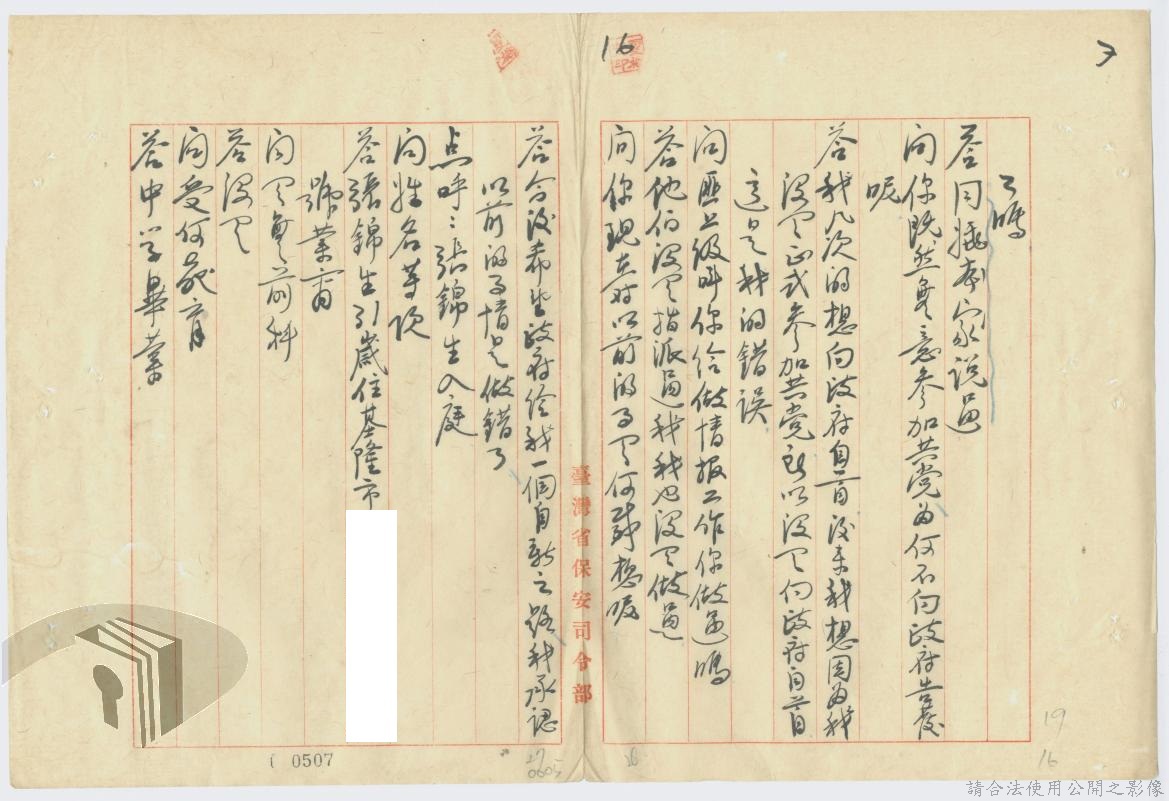 16
了嗎
答同孫本家說過
問你既然無意參加共党為何不向政府告發
呢
答我几次的想向政府自首後來我想因為我
沒有正式參加共党所以沒有向政府自首
這是我的錯誤
問匪上級叫你給做情报工作你做过嗎
答他们沒有指派過我我也沒有做過
問你現在对以前的事有何感想呢
臺灣省保安司令部
答今後希望政府给我一個自新之路我承認
以前的事情是做錯了
点呼：張錦生入庭
問姓名等項
答張錦生 歲住基隆市
號業商
問有無前科
答沒有
問受何教育
答中学畢業
0507
27
0605
19
16
請合法使用公開之影像